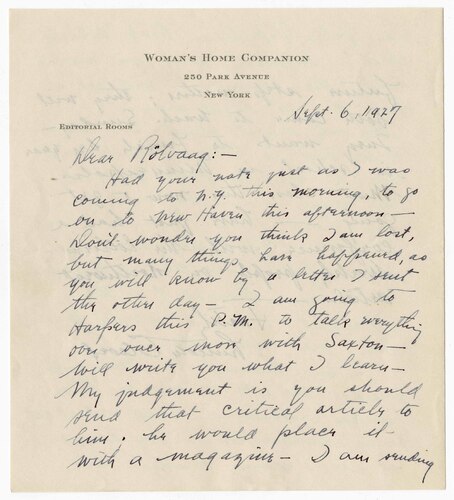 WOMAN'S HOME COMPANION
250 PARK AVENUE
NEW YORK
Sept. 6, 1927
EDITORIAL ROOMS
Dear Rölvaag:—
Had your note just as I was
coming to N.Y. this morning, to go
on to New Haven this afternoon—
Don't wonder you think I am lost,
but many things have happened, as
you will know by a letter I sent
the other day— I am going to
Harpers this P.M. to talk everything
over once more with Saxton—
will write you what I learn—
My judgement is you should
send that critical article to
him, he would place it
with a magazine— I am sending